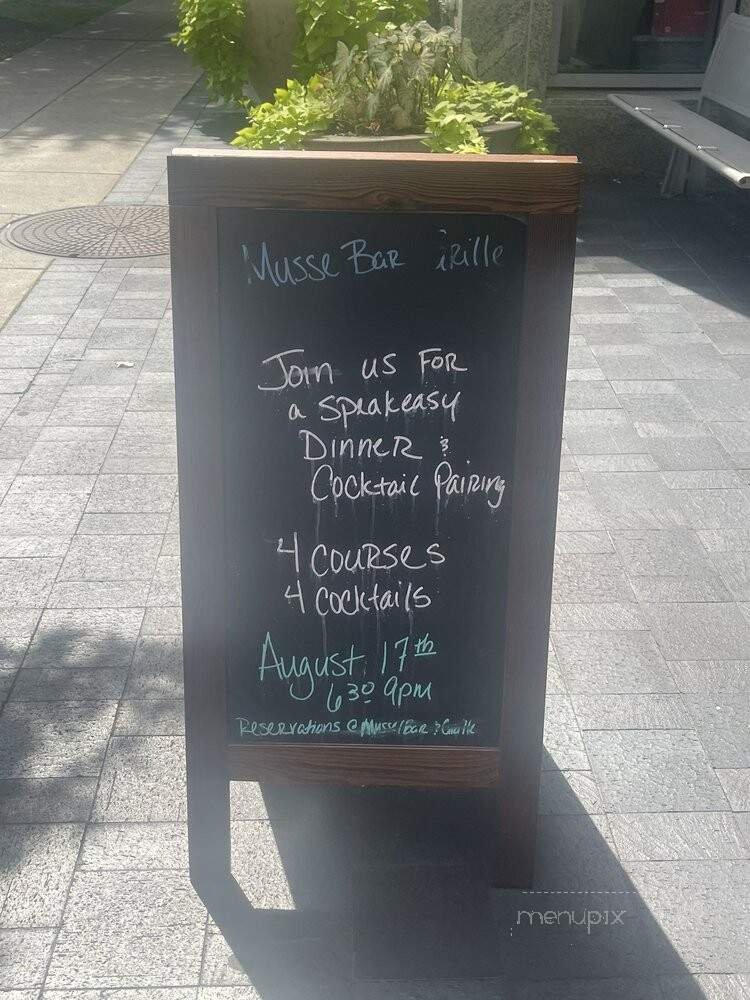 Musse Bar irille
Join us For
a Speakeasy
Dinner &
Cocktail Pairing
4 Courses
4 Cocktails
August 17th
630 9pm
Reservations @ Mussel Bar &
menupix